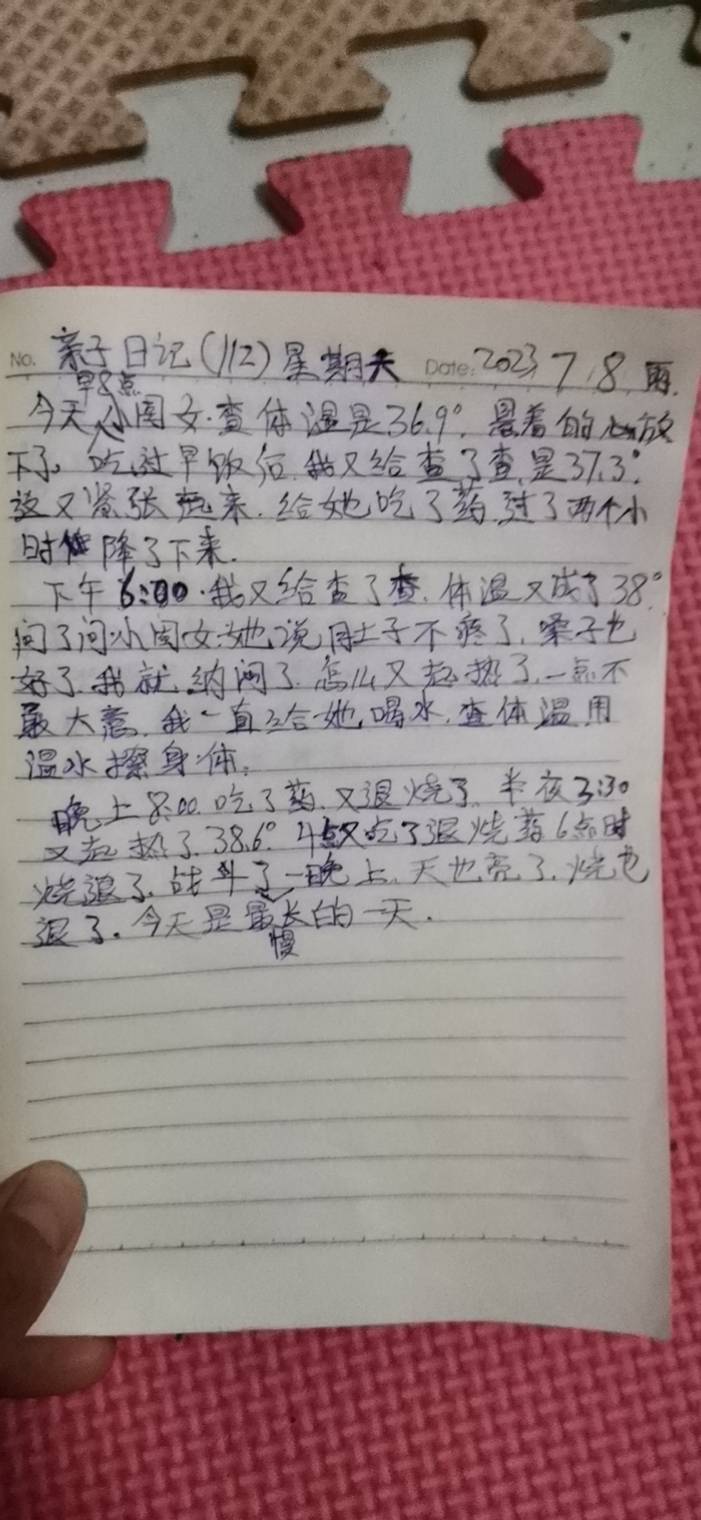 No. 亲子日记(112) 星期天 Date: 2023 7 8 雨.
早8点
今天小闺女.查体温是36.9°. 悬着的心放
下了. 吃过早饭后.我又给查了查.是37.3°.
这又紧张起来.给她吃了药.过了两个小
时 降了下来.
下午6:00.我又给查了查.体温又成了38°.
问了问小闺女.她说肚子不疼了.嗓子也
好了.我就纳闷了.怎么又起热了.一点不
敢大意.我一直给她喝水.查体温用
温水擦身体.
晚上8:00.吃了药.又退烧了.半夜3:30
又起热了.38.6°. 4点又吃了退烧药6点时
烧退了.战斗了一晚上.天也亮了.烧也
退了.今天是最长的一天.
慢